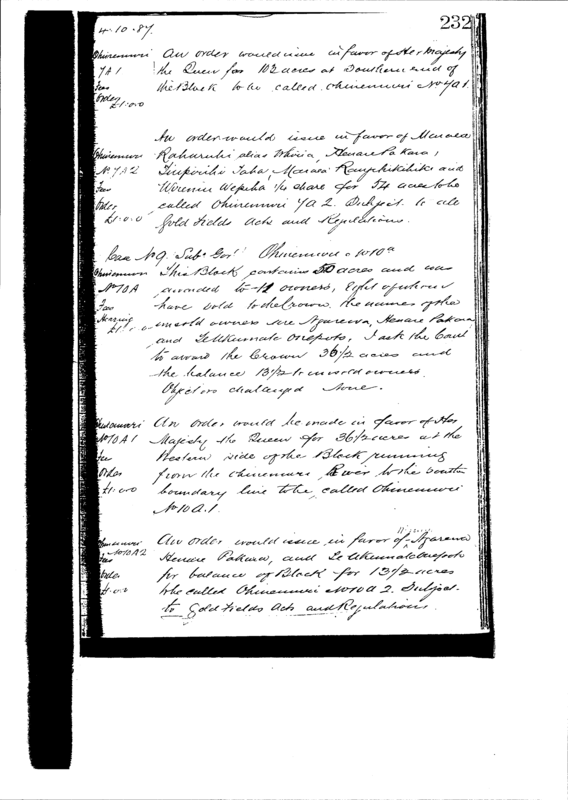 232
4.10.87.
Ohinemuri An order would issue in favor of Her Majesty
7A1 the Queen for 102 acres at Southern end of
Fee the Block to be called Ohinemuri No 7A1.
Order
£1.0.0
An order would issue in favor of Maraea
Ohinemuri alias Henare Pakara,
No 7A2 Taha Maraea and
Fee share for 54 acres to be
Order called Ohinemuri 7A2. Subject to all
£1.0.0 Gold Fields Acts and Regulations.
Case No 9. Sub. Gov. Ohinemuri No 10A
Ohinemuri This Block contains 50 acres and was
No 10A awarded to 11 owners, Eight of whom
Fee have sold to the Crown the names of the
Hearing unsold owners are Ngarewa, Henare Pakara
£1 and Te Ukumate, I ask the Court
to award the Crown 36 1/2 acres and
the balance 13 1/2 to unsold owners.
Objectors challenged None.
Ohinemuri An order would be made in favor of Her
No 10A1 Majesty the Queen for 36 1/2 acres at the
Fee Western side of the Block running
Order from the Ohinemuri River to the South
£1.0.0 boundary line to be called Ohinemuri
No 10A.1.
Ohinemuri An order would issue in favor of Ngarewa
No 10A2 Henare Pakara, and Te Ukumate
Fee for balance of Block for 13 1/2 acres
Order to be called Ohinemuri No 10A2. Subject
£1.0.0 to Gold Fields Acts and Regulations.